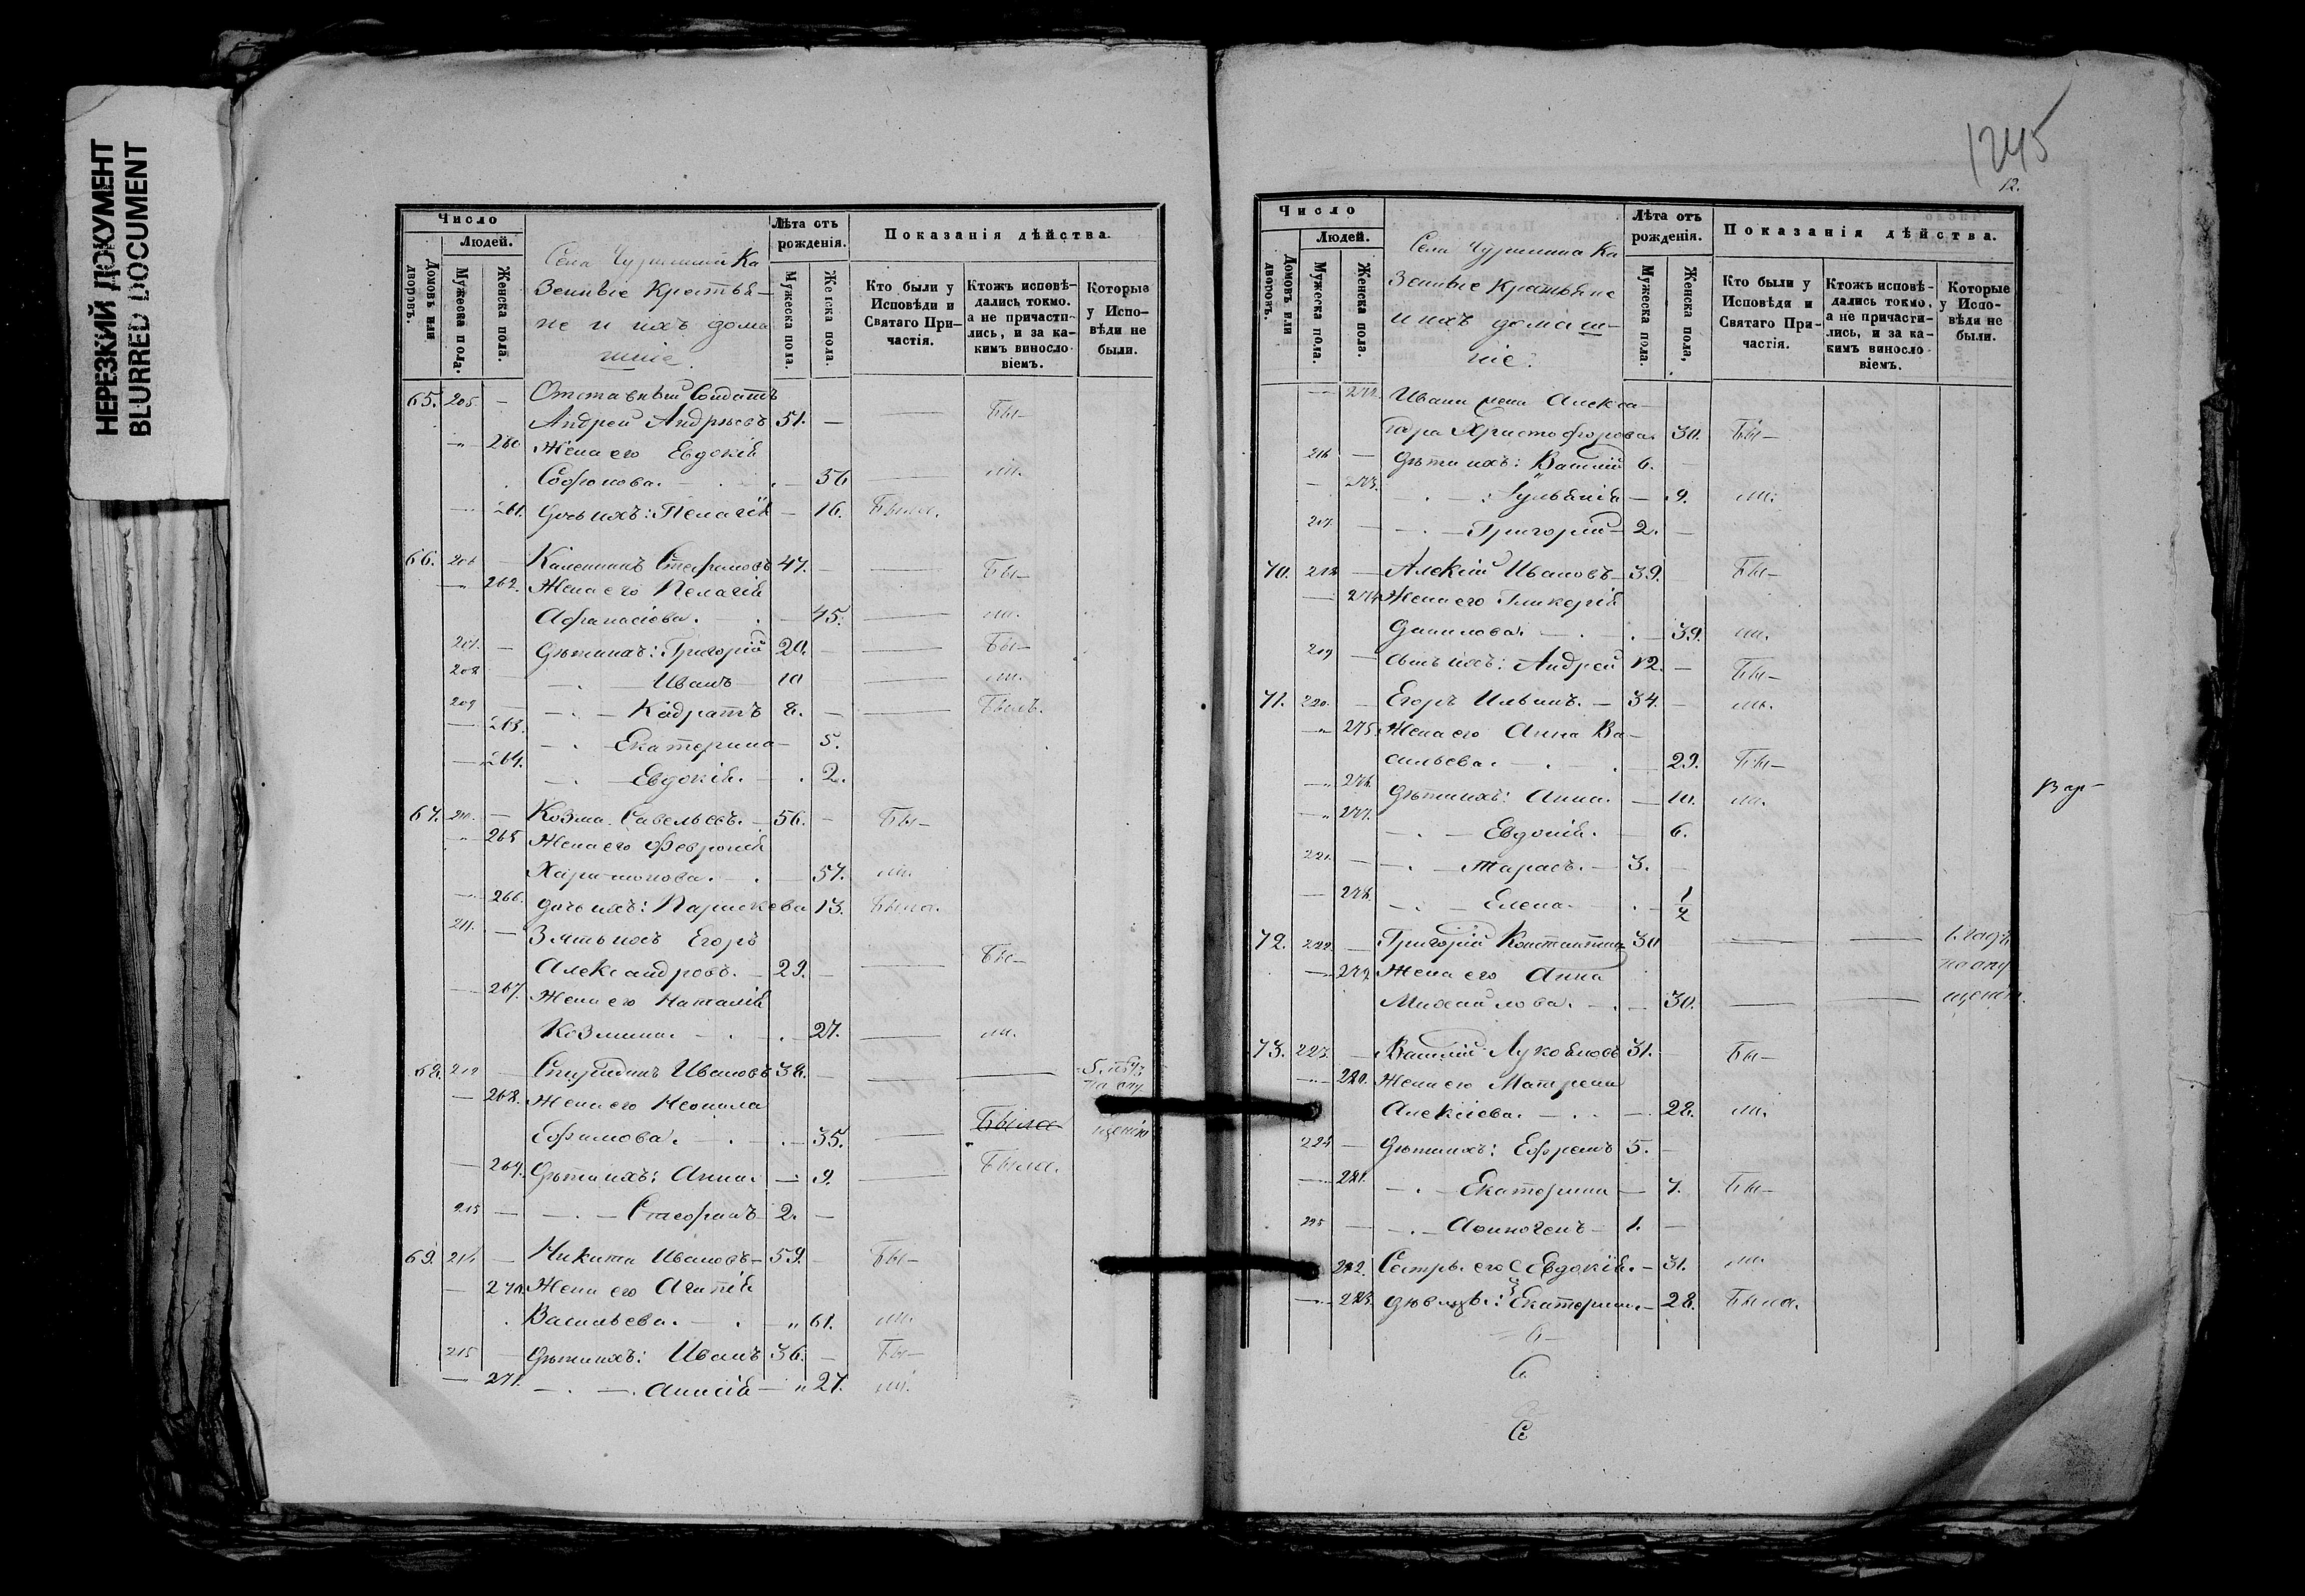 НЕРЕЗКИЙ ДОКУМЕНТ
BLURRED DOCUMENT
Число
Людей.
Домовъ или дворовъ.
Мужеска пола.
Женска пола.
Села Ка
зенные Крестья-
не и ихъ дома
шніе.
Лѣта отъ рожденія.
Мужеска пола.
Женска пола.
Показанія дѣйства.
Кто были у Исповѣди и Святаго При-частія.
Ктожъ исповѣ-дались токмо, а не причасти-лись, и за ка-кимъ винословіемъ.
Которые у Испо-вѣди не были.
65. 205. — Отставный Солдатъ
Андрей Андреевъ 51. — — Бы—
— 260 Жена его Евдокія
Софронова. — 36 —
— 261. Дочь ихъ: Пелагія — 16. Была.
66. 206 — Калинникъ Стефановъ 47. — — Бы—
— 262. Жена его Пелагія
Афанасіева. — 45. —
207. — Дѣти ихъ: Григорій 20. — — Бы—
208 — Иванъ 10 —
209 — Кодратъ 8. — — Былъ.
— 263. — Екатерина — 5.
— 264. — Евдокія. — 2.
67. 210. — Козма Савельевъ. — 56. — Бы—
— 265 Жена его Феврония
Харитонова. — 57.
— 266. Дочь ихъ: Параскева 13. Была.
211. — Зять ихъ Егоръ
Александровъ. — 29. — — Бы—
— 267. Жена его Наталія
Козмина. — 27. —
68. 212 — Спиридонъ Ивановъ 38. — — —
по опу
— 268. Жена его Неонила
Ефимова. — 35. — Была
щенію
— 269. Дѣти ихъ: Анна. — 9. — Была.
213 — — 2. —
69. 214 — Никита Ивановъ — 59. — Бы—
— 270. Жена его Агапія
Васильева. — 61.
215 — Дѣти ихъ: Иванъ 36. — Бы—
— 271. — Анисія — 27.
1245
12.
Число
Людей.
Домовъ или дворовъ.
Мужеска пола.
Женска пола.
Села Ка
зенные Крестьяне
и ихъ домаш—
ніе.
Лѣта отъ рожденія.
Мужеска пола.
Женска пола.
Показанія дѣйства.
Кто были у Исповѣди и Святаго При-частія.
Ктожъ исповѣ-дались токмо, а не причасти-лись, и за ка-кимъ винословіемъ.
Которые у Испо-вѣди не были.
— 272. Ивана жена Алекса—
ндра Христофорова. 30. Бы—
216 — Дѣти ихъ: Василій 6. —
— 273. — Іульянія — 9.
217 — — Григорій — 2. —
70. 218 — Алексій Ивановъ — 39. Бы—
— 274 Жена его Гликерія
Данилова. — 39.
219 — Сынъ ихъ: Андрей 12. — Бы—
71. 220. — Егоръ Ильинъ. — 34. —
— 275. Жена его Анна Ва—
сильева. — 29. Бы—
— 276. Дѣти ихъ: Анна. — 10.
— 277. — Евдокія. — 6.
221. — — Тарасъ. — 3. —
— 278. — Елена. — 1/2
72. 222. — Григорій Константинъ 30 — —
по опу
— 279 Жена его Анна
Михайлова. — 30. — — щенію.
73. 223. — Василій Лукояновъ 31. — Бы—
— 280. Жена его Матрена
Алексіева. — 28.
224 — Дѣти ихъ: Ефремъ 5. —
— 281. — Екатерина — 7. Бы—
225 — — Аѳиногенъ — 1. —
282. Сестры его Евдокія. — 31.
— 283. дѣвицы: Екатерина. — 28. Была.